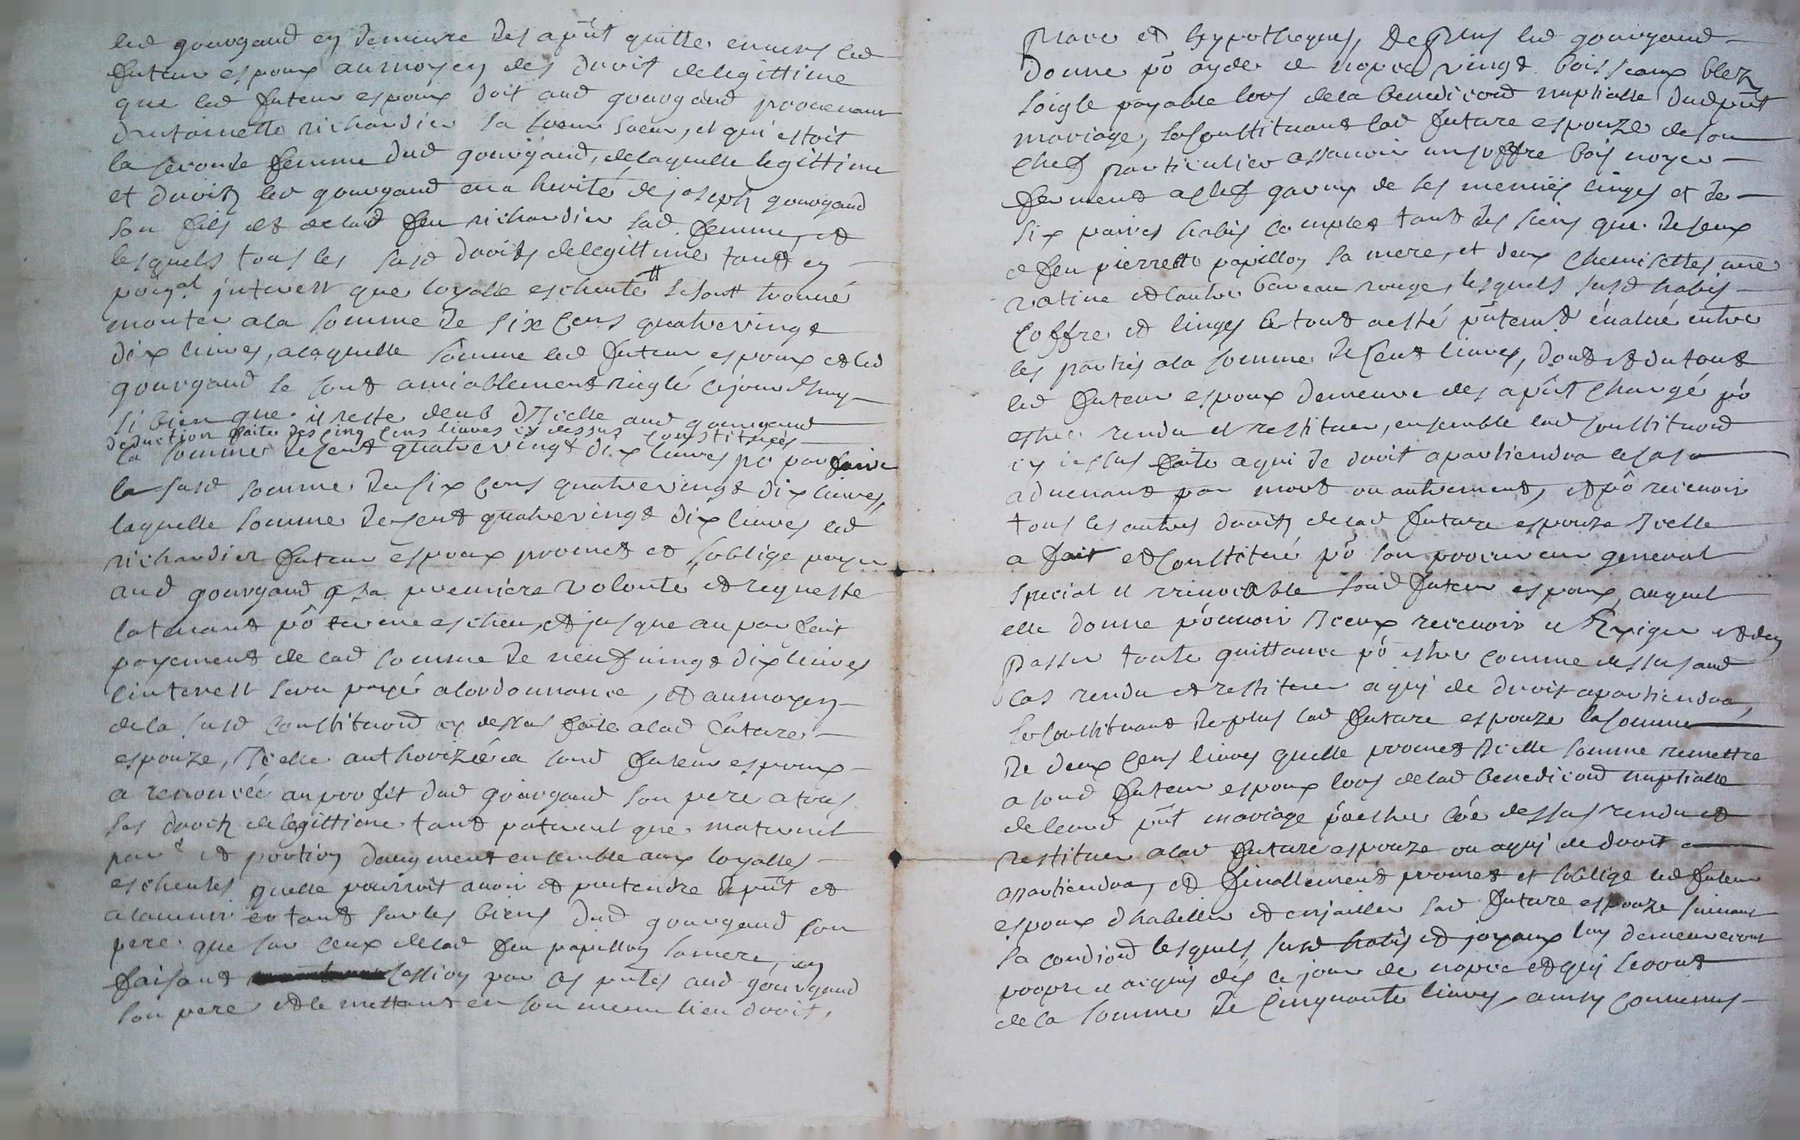 led gourgaud en demeure des a pnt quitte envers led
futeur espoux aumoyen des droit de legittime
que led futeur espoux doit aud gourgaud provenant
dantoinette richardier sa soeur, et qui estoit
la seconde femme dud gourgaud, de laquelle legittime
et droitz led gourgaud en a herité de joseph gourgaud
son fils et de lad feu richardier sad femme, et
lesquels tous les susd droitz de legittime tant en
prinpal interest que loyalle escheute se sont trouvé
monter a la somme de six cens quatre vingt
dix livres, a laquelle somme led futeur espoux et led
gourgaud se sont amiablement rieglé cejourdhuy
si bien que il reste deub dicelle aud gourgaud
deduction faite des cinq cens livres cy dessus constituées
la somme de cent quatre vingt dix livres pô parfaire
la susd somme de six cens quatre vingt dix livres,
laquelle somme de cent quatre vingt dix livres led
richardier futeur espoux promet et soblige payer
aud gourgaud a sa premiere volonté et requeste
la tenant pô terme escheu, et jusque au parfait
payement de lad somme de neuf vingt dix livres
linterest sera payé a lordonnance, et aumoyen
de la susd constitution cy dessus faite a lad future
espouze, icelle authorizée a sond futeur espoux
a renoncée au profit dud gourgaud son pere a tous
ses droitz de legittime tant paternel que maternel
part et portion daugment ensemble aux loyalles
escheutes quelle pourroit avoir et pretendre de pnt et
a ladvenir en tant sur les biens dud gourgaud son
pere que sur ceux de lad feu papillon sa mere, en
faisant cession par ces pntes aud gourgaud
son pere et le mettant en son meme lieu droit,
place et hypotheques, de plus led gourgaud
donne pô ayde de nopce vingt boisseaux bled
soigle payable lors de la benediction nuptialle dud pnt
mariage, se constituant lad future espouze de son
chef particulier assavoir un coffre bois noyer
fermant a clef garny de ses menues linges et de
six paires habis complet tant des siens que de ceux
de feu pierrette papillon sa mere, et deux chemisettes une
ratine et lautre bureau rouge, lesquels susd habis
coffre et linges le tout a esté pntemt évalué entre
les parties a la somme de cent livres, dont et du tout
led futeur espoux demeure des a pnt chargé pô
estre rendu et restituer, ensemble lad constitution
cy dessus faite a qui de droit apartiendra le cas
advenant par mort ou autrement, et pô recevoir
tous les autres droitz de lad future espouze icelle
a fait et constitué pô son procureur general
special et irrevocable sond futeur espoux, auquel
elle donne pouvoir iceux recevoir et exiger et den
passer toute quittance pô estre comme dessus aud
cas rendu et restituer a qui de droit apartiendra,
se constituant de plus lad future espouze la somme
de deux cens livres quelle promet icelle somme remettre
a sond futeur espoux lors de lad benediction nuptialle
de leurd pnt mariage pô estre coe dessus rendu et
restituer a lad future espouze ou a qui de droit
apartiendra, et finallement promet et soblige led futeur
espoux dhabiller et enjoailler sad future espouze suivant
sa condition lesquels susd habis et joyaux luy demeureront
propre et aquis dés ce jour de nopce et qui seront
de la somme de cinquante livres, ainsy convenus